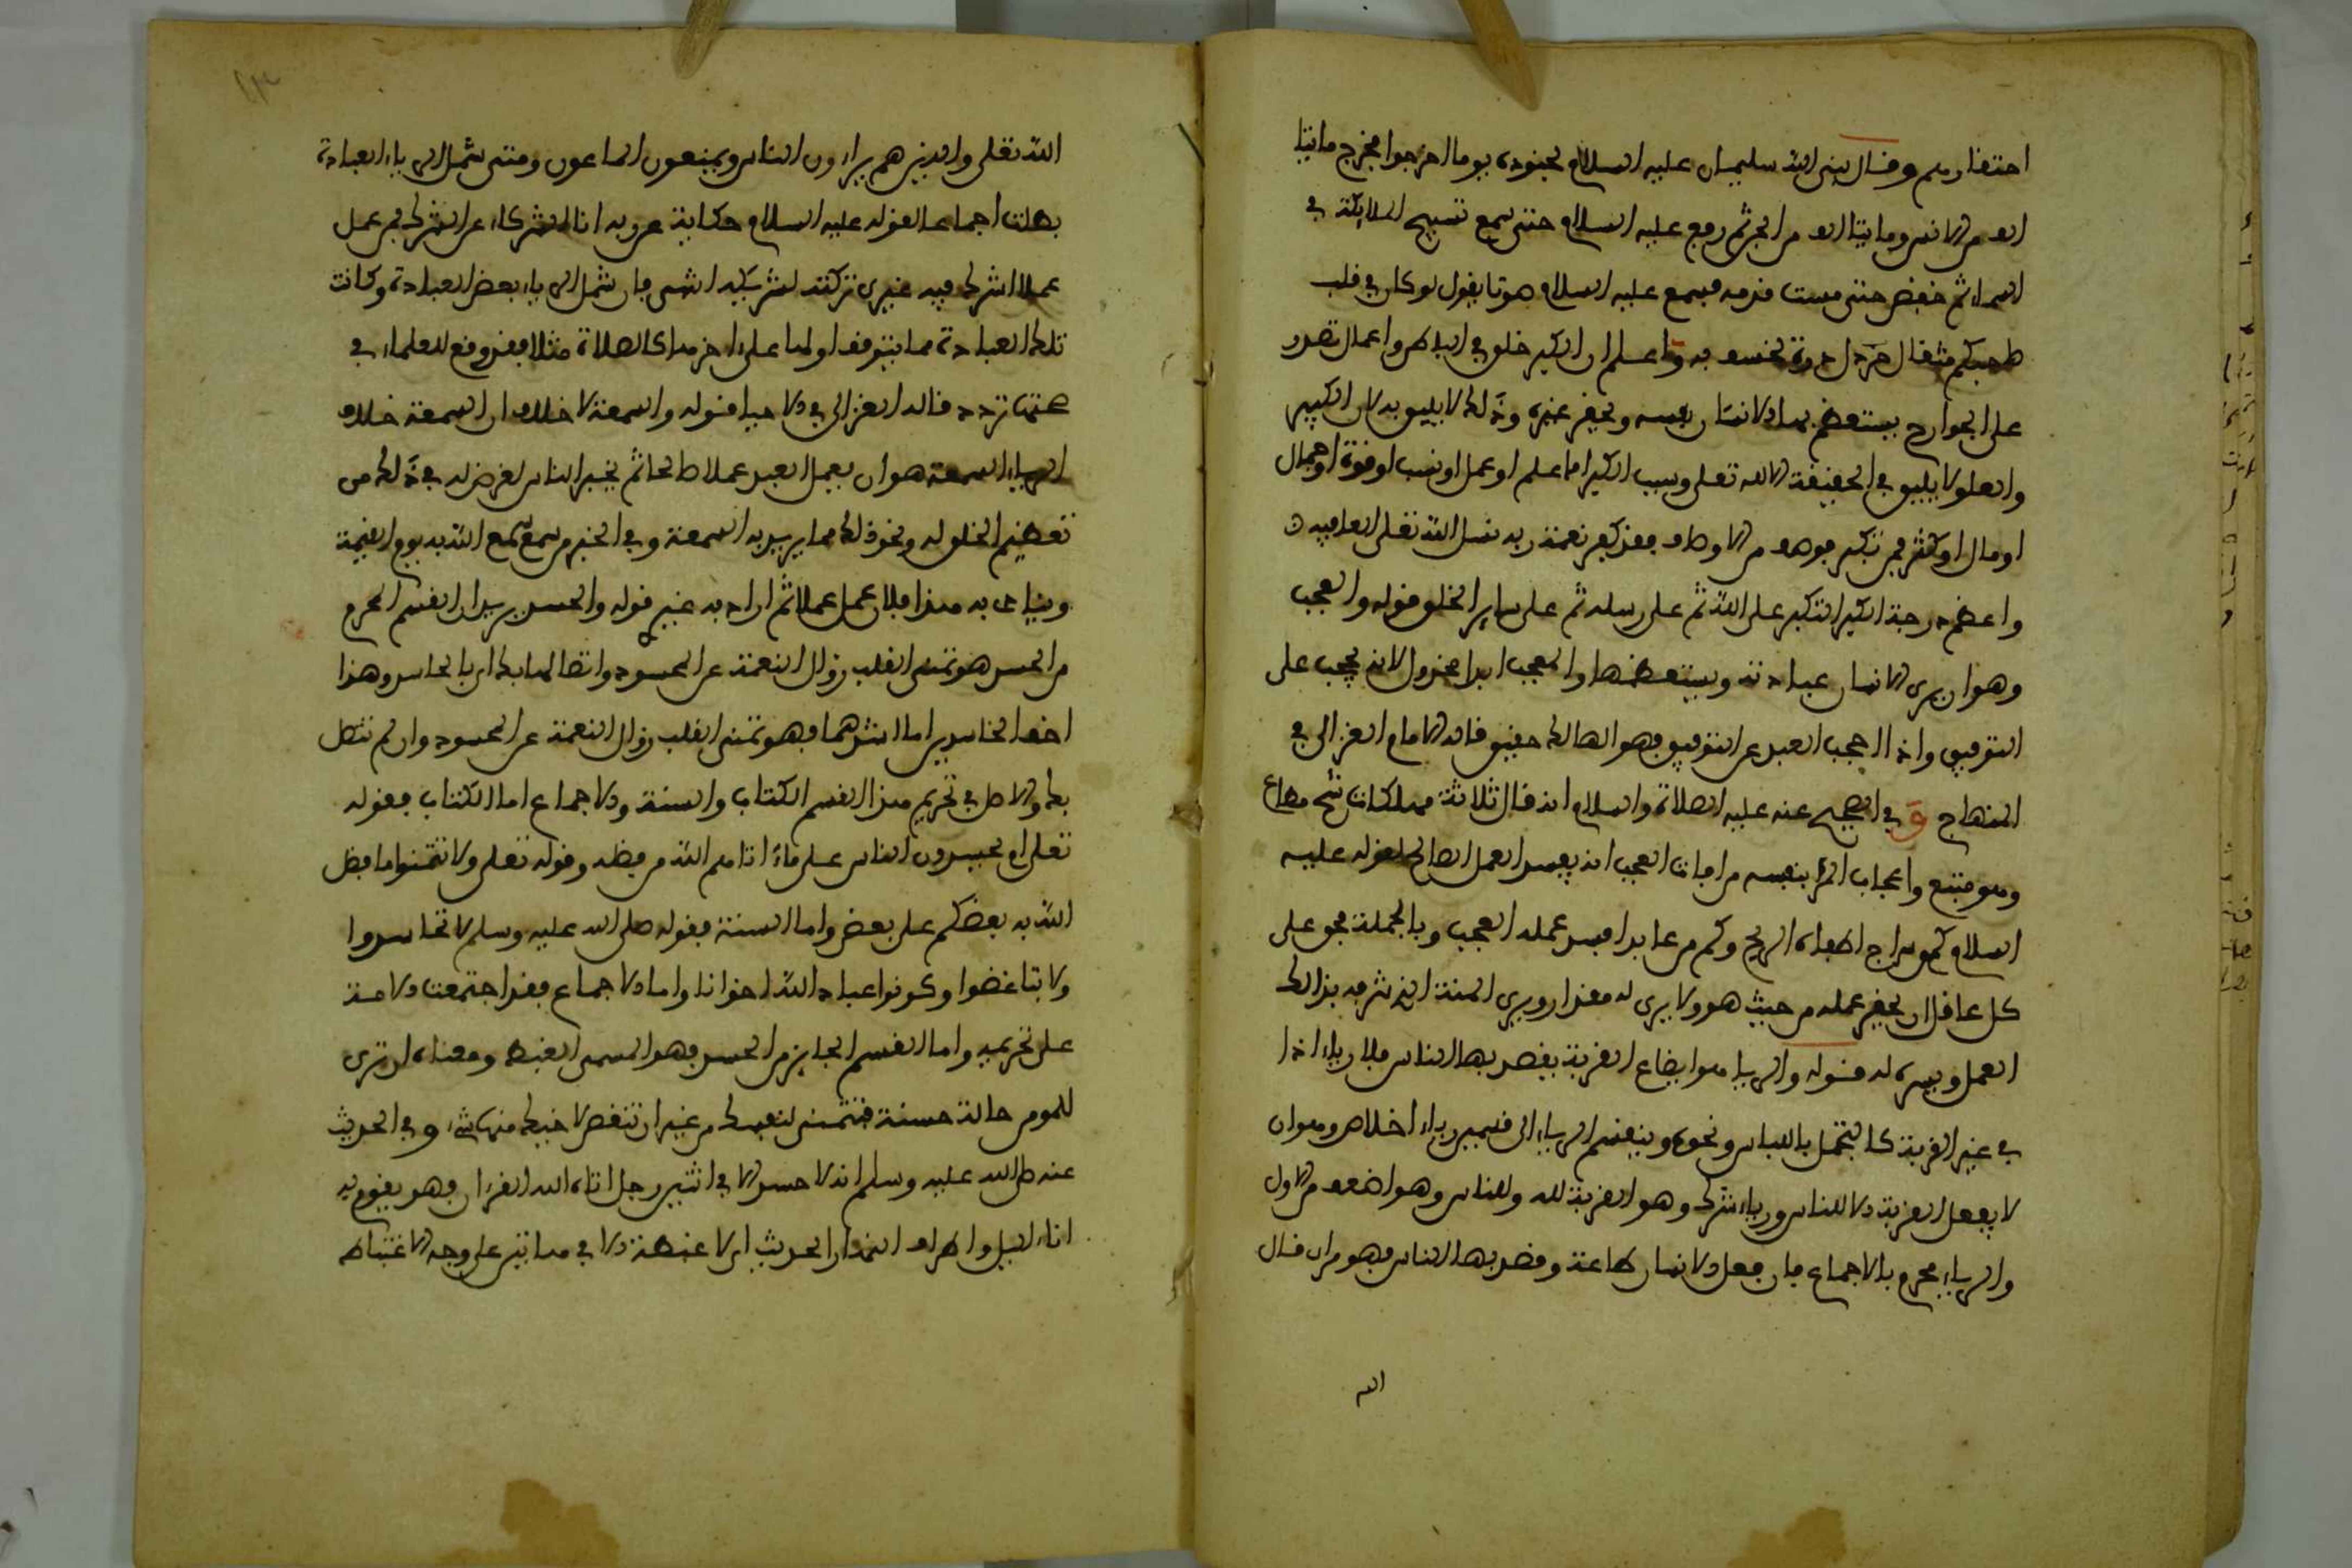 احتقارهم وقال نبي الله سليمان عليه السلام لجنوده يوما اخرجوا فخرج مائتا
الف من الانس ومائتا الف من الجن ثم رفع عليه السلام حتى سمع تسبيح الملائكة في
السماء ثم خفض حتى مست قدمه فسمع عليه السلام صوتا يقول لو كان في قلب
صاحبكم مثقال خردل لخسف به واعلم ان الكبر خلق في الباطن واعمال تصدر
على الجوارح يستعظم بها الانسان نفسه ويحقر غيره وذلك لا يليق به لان الكبر
والعلو لا يليق في الحقيقة الا لله تعلى وسبب الكبر اما علم او عمل او نسب او قوة او جمال
او مال او كثرة فمن تكبر بوصف من الاوصاف فقد كفر نعمة ربه نسل الله تعلى العافية
واعظم درجة الكبر التكبر على الله ثم على رسله ثم على ساير الخلق قوله والعجب
وهو ان يرى الانسان عبادته ويستعظمها والمعجب ابدا مخذول لانه يحجب على
التوفيق واذا احجب العبد عن التوفيق فهو الهالك حقيق قاله الامام الغزالي في
المنهاج وفي الصحيح عنه عليه الصلاة والسلام انه قال ثلاثة مهلكات شح مطاع
وهو متبع واعجاب المرء بنفسه من افات العجب انه يفسد العمل الصالح لقوله عليه
السلام كم من سراج اطفاه الريح وكم من عابد افسد عمله العجب وبالجملة فحق على
كل عاقل ان يحقر عمله من حيث هو ولا يرى له مقدارا ويرى المنة الذي شرفه بذالك
العمل ويسره له قوله والريا هو ايقاع القربة يقصد بها الناس فلا رياء اذا
في غير القربة كالتجمل باللباس ونحوه وينقسم الرياء الى قسمين رياء اخلاص وهو ان
لا يفعل القربة الا للناس ورياء شرك وهو القربة لله وللناس وهو اضعف من الاول
والرياء محرم بالاجماع فان فعل الانسان طاعة وقصد بها الناس فهو مراء قال
الله
الله تعلى والذين هم يراءون الناس ويمنعون الماعون ومتى شمل الرياء العبادة
بطلت اجماعا لقوله عليه السلام حكاية عن ربه انا اغنى الشركاء عن الشرك فمن عمل
عملا اشرك فيه غيري تركته لشريكه فان شمل الرياء بعض العبادة وكانت
تلك العبادة مما يتوقف اولها على اخرها كالصلاة مثلا فقد وقع للعلماء في
صحتها تردد قاله الغزالي في الاحيا قوله والسمعة لا خلاف ان السمعة خلاف
الرياء السمعة هو ان يعمل العبد عملا صالحا ثم يخبر الناس لغرض له في ذلك من
تعظيم الخلق له ونحو ذلك مما يريد به السمعة وفي الخبر من سمع سمع الله به يوم القيمة
وينادى به هذا فلان عمل عملا ثم اراد به غيري قوله والحسد يريد ان القسم المحرم
من الحسد هو تمني القلب زوال النعمة عن المحسود وانتقالها بك اي يا حاسد وهذا
اخف الحاسدين اما اشرهما فهو تمني القلب زوال النعمة عن المحسود وان لم تتصل
بك والاصل في تحريم هذا القسم الكتاب والسنة والاجماع اما الكتاب فقوله
تعلى ام يحسدون الناس على ما ءاتاهم الله من فضله وقوله تعلى ولا تتمنوا ما فضل
الله به بعضكم على بعض واما السنة فقوله صلى الله عليه وسلم لا تحاسدوا
ولا تباغضوا وكونوا عباد الله اخوانا واما الاجماع فقد اجتمعت الامة
على تحريمه واما القسم الجايز من الحسد فهو المسمى الغبطة ومعناه ان ترى
للمومن حالة حسنة فتتمنى لنفسك من غير ان تنقص لاخيك منها شيء وفي الحديث
عنه صلى الله عليه وسلم انه لا حسد الا في اثنين رجل اتاه الله القرءان فهو يقوم به
اناء الليل واطراف النهار الحديث اي لا غبطة الا في هاتين على وجه الاغتباط